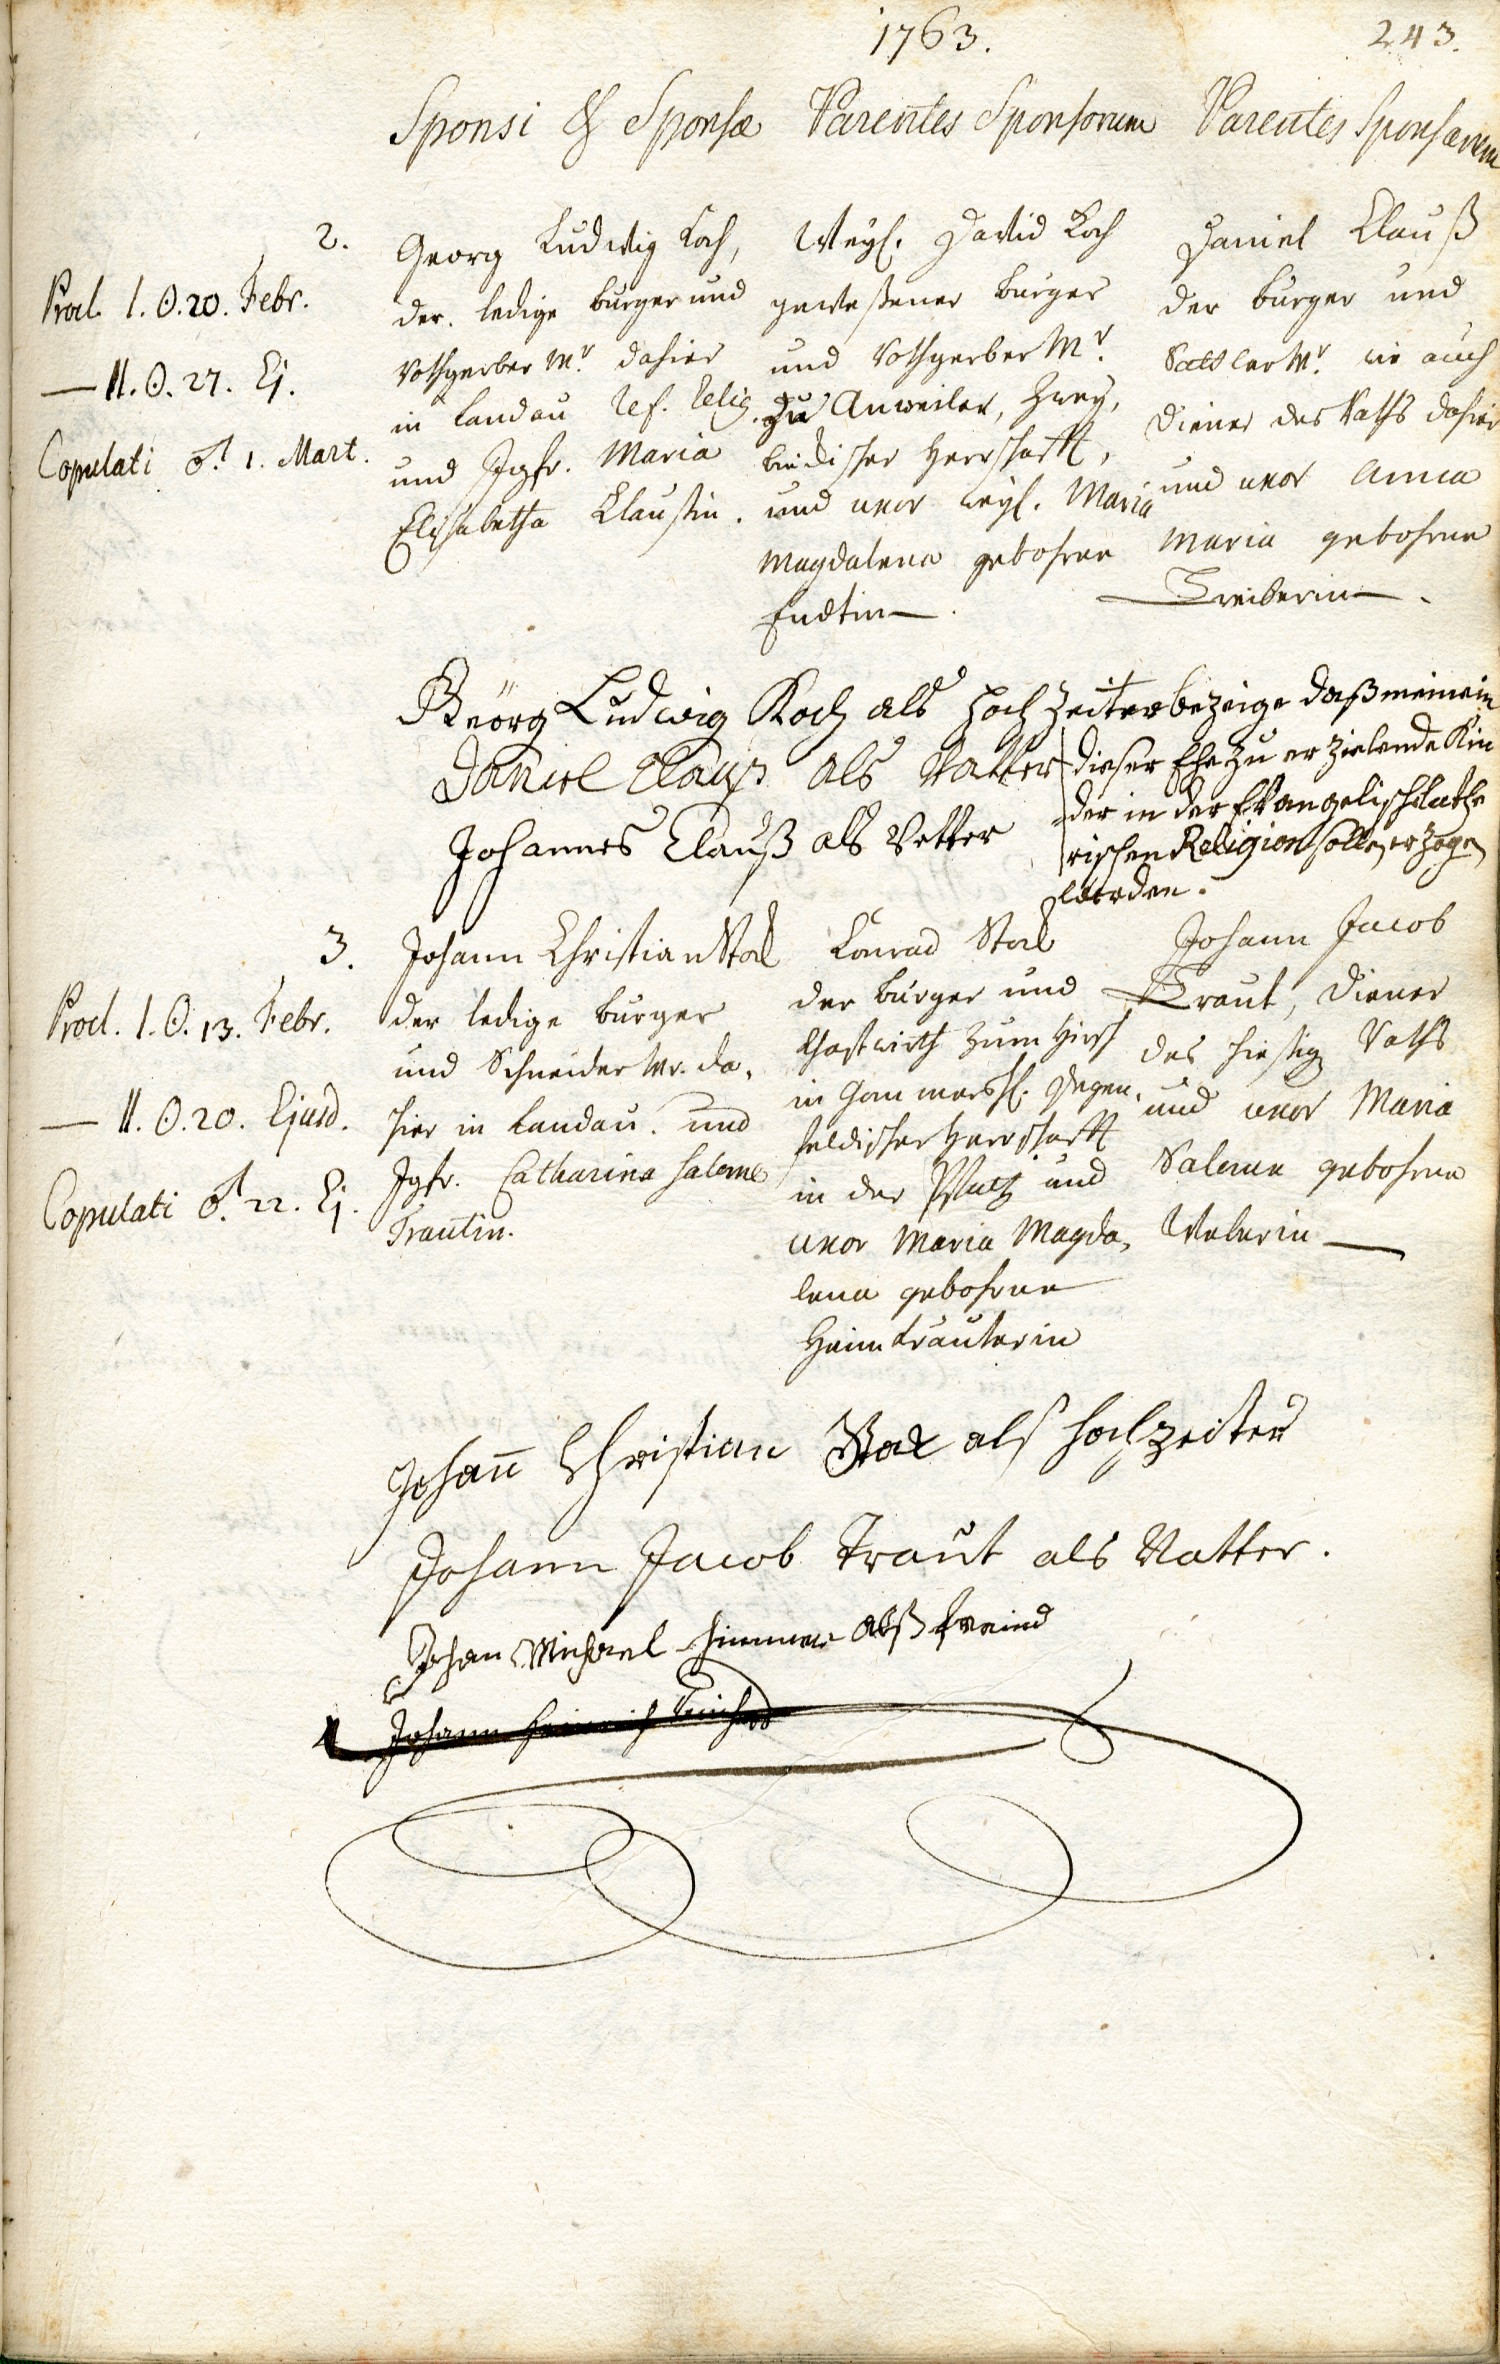 1763.
243.
Sponsi & Sponsæ
Parentes Sponsorum
Parentes Sponsarum
2.
Procl. I. ☉. 20. Febr.
— II. ☉. 27. Ej.
Copulati ♂. 1. Mart.
Georg Ludwig Koch,
der ledige burger und
Rothgerber Mr. dahier
in Landau Ref. Relig.
und Jgfr. Maria
Elisabetha Claußin.
Weyl. David Koch
geweßener burger
und Rothgerber Mr.
zu Anweiler, Zwey,
brückischer Herrschafft,
und uxor weyl. Maria
Magdalena gebohrne
Endtin
Daniel Clauß
der burger und
Sattler Mr. wie auch
Diener des Raths dahier
und uxor Anna
Maria gebohrne
Treiberin
Geörg Ludwig Koch als Hochzeiter bezeige daß meine in
Daniel Clauß als Vatter
dieser Ehe zu erzielende Kin
Johannes Clauß als Vetter
der in der Evangelisch luthe
rischen Religion sollen erzogen
werden.
3.
Procl. I. ☉. 13. Febr.
— II. ☉. 20. Ejusd.
Copulati ♂. 22. Ej.
Johann Christian
der ledige burger
und Schneider Mr. da,
hier in Landau. und
Jgfr. Catharina Salome
Trautin.
Conrad
der burger und
Gastwirth zum Hirsch
in
Herrschafft
in der Pfaltz und
uxor Maria Magda,
lena gebohrne
Heimkräuterin
Johann Jacob
Traut, Diener
des hiesig Raths
und uxor Maria
Salome gebohrne
Weberin
Johann Christian als Hochzeiter
Johann Jacob Traut als Vatter.
Johan Michael alß freind
Johann Heinrich